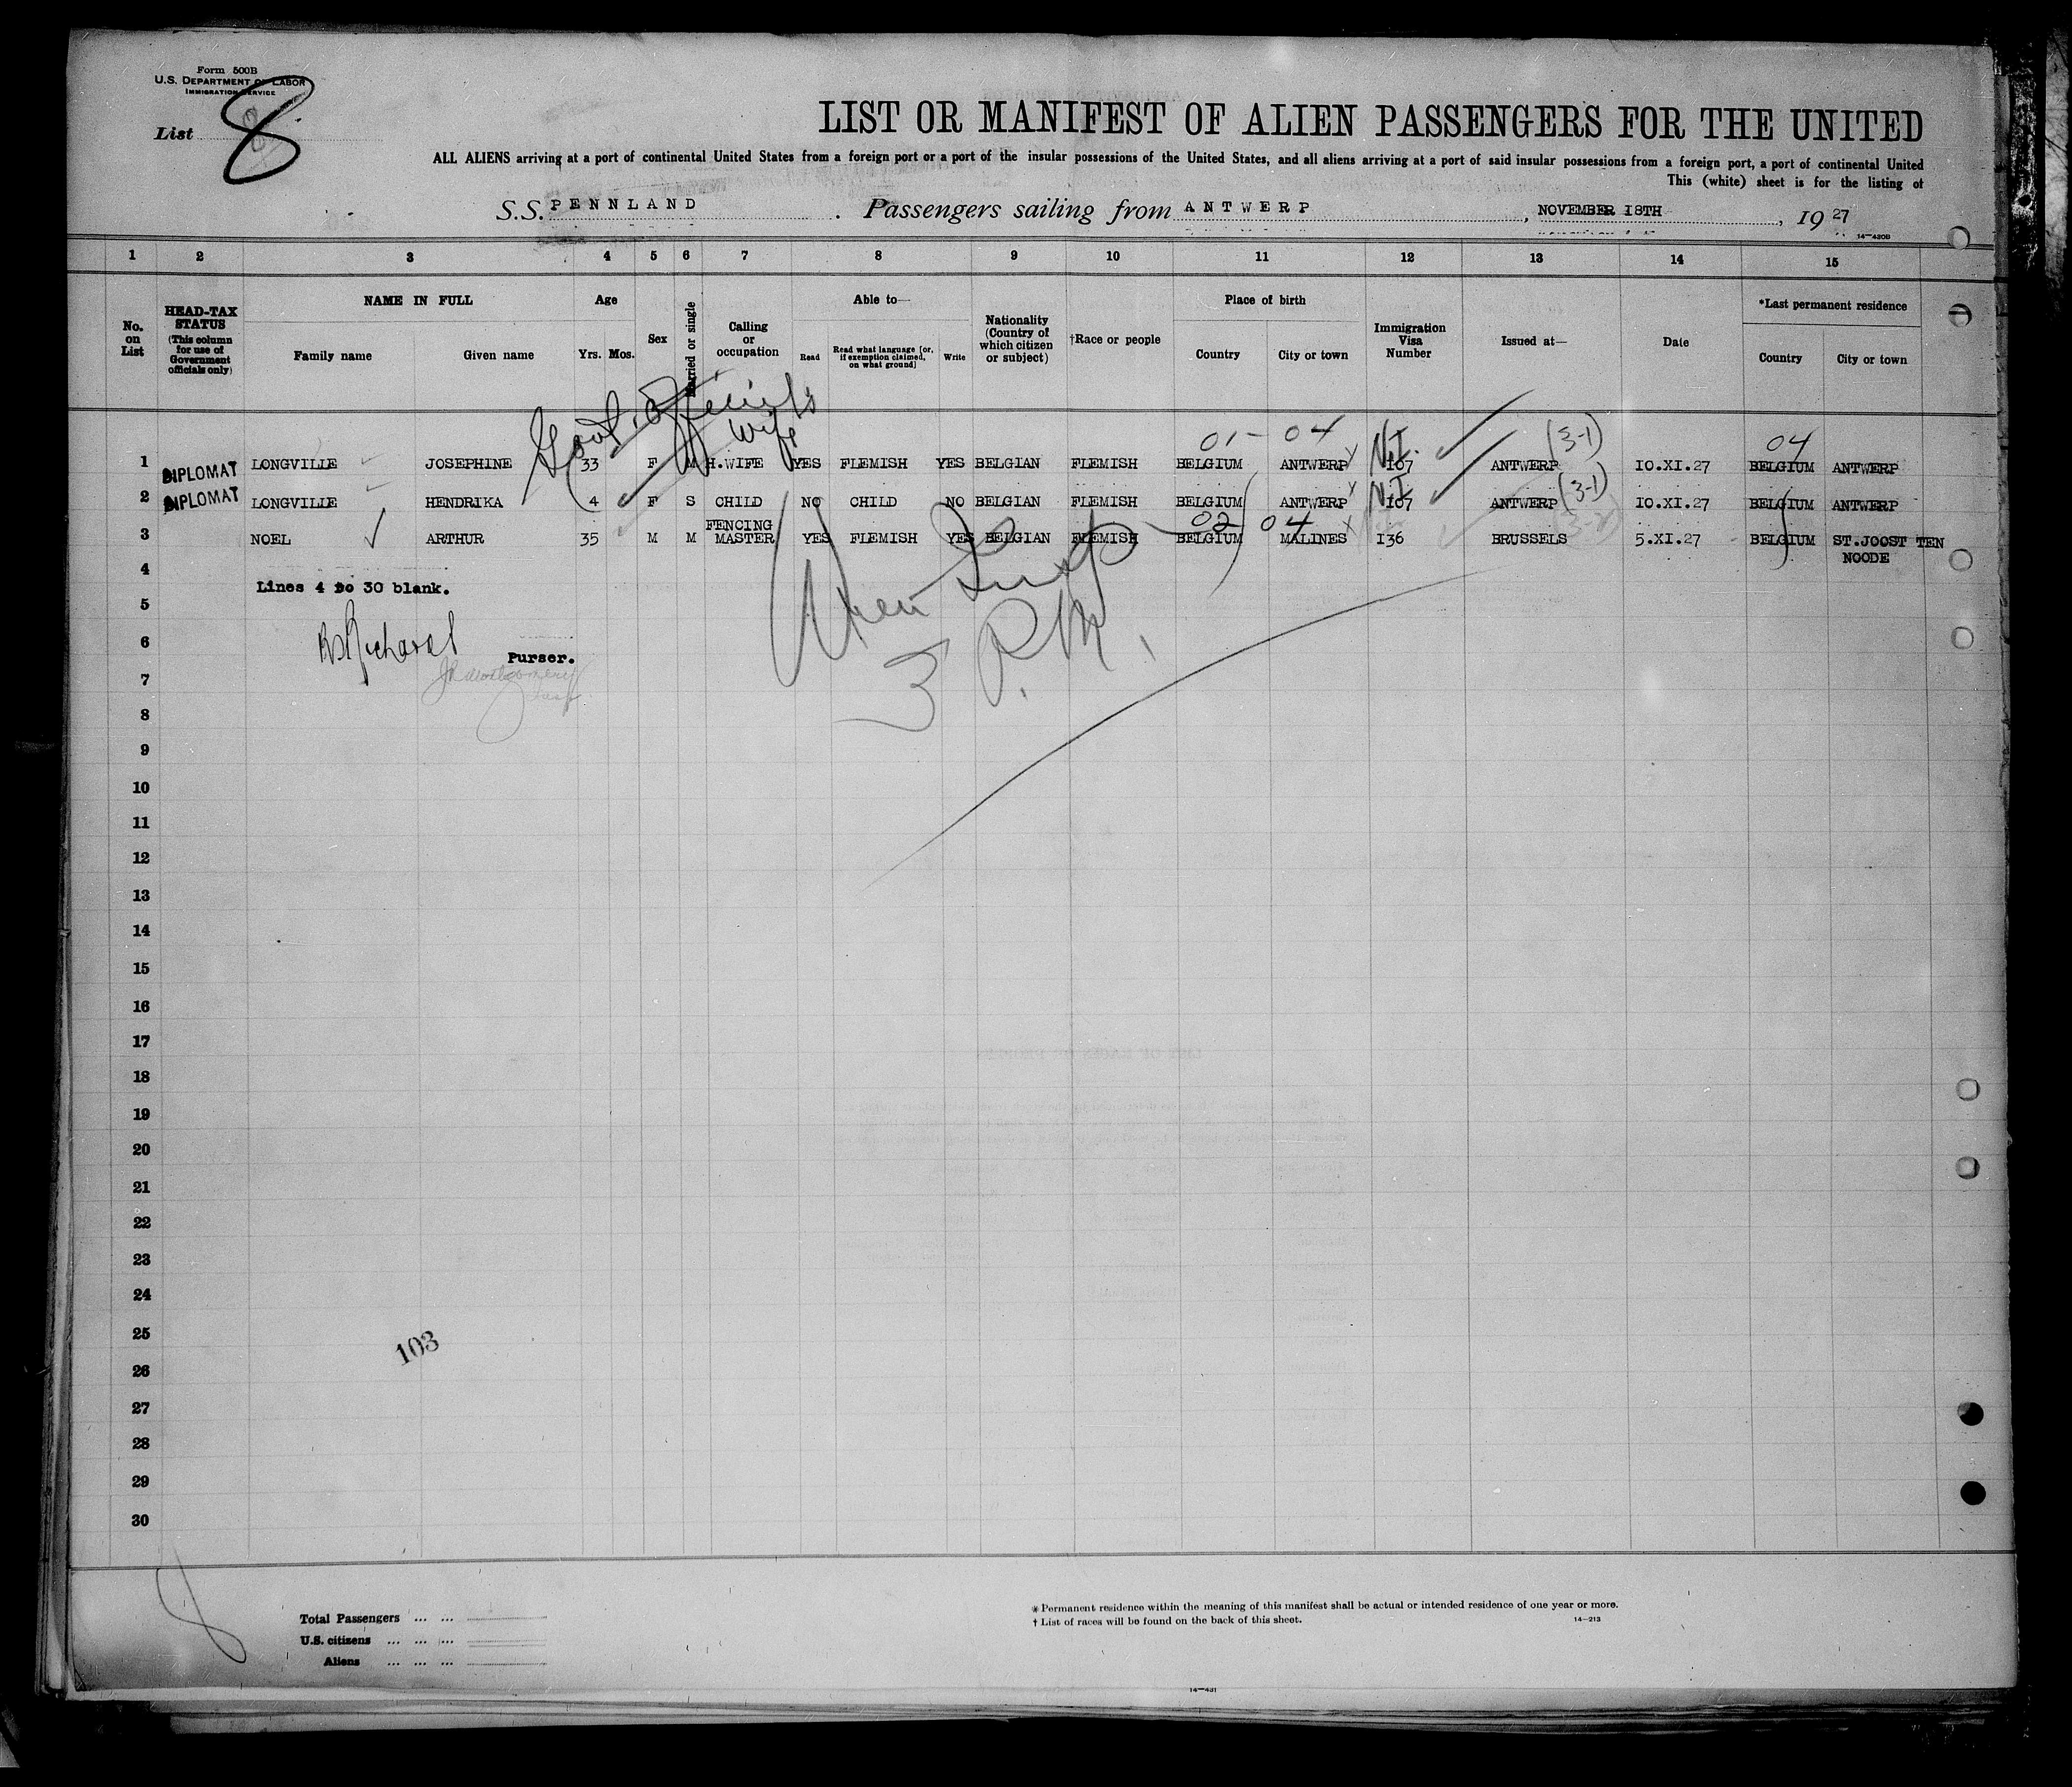 Form 500B
U.S. DEPARTMENT OF LABOR
IMMIGRATION SERVICE
List 8
LIST OR MANIFEST OF ALIEN PASSENGERS FOR THE UNITED
ALL ALIENS arriving at a port of continental United States from a foreign port or a port of the insular possessions of the United States, and all aliens arriving at a port of said insular possessions from a foreign port, a port of continental United
This (white) sheet is for the listing of
S.S. PENNLAND . Passengers sailing from ANTWERP , NOVEMBER 18TH , 19 27
14—430B
1 2 3 4 5 6 7 8 9 10 11 12 13 14 15
No. on List
HEAD-TAX STATUS (This column for use of Government officials only)
NAME IN FULL
Family name Given name
Age
Yrs. Mos.
Sex
Married or single
Calling or occupation
Able to—
Read
Read what language [or, if exemption claimed, on what ground]
Write
Nationality (Country of which citizen or subject)
†Race or people
Place of birth
Country City or town
Immigration Visa Number
Issued at—
Date
*Last permanent residence
Country City or town
Govt. Official's
wife
01- 04 N.I. (3-1) 04
1 DIPLOMAT LONGVILLE JOSEPHINE 33 F M H.WIFE YES FLEMISH YES BELGIAN FLEMISH BELGIUM ANTWERP 107 ANTWERP 10.XI.27 BELGIUM ANTWERP
N.I. (3-1)
2 DIPLOMAT LONGVILLE HENDRIKA 4 F S CHILD NO CHILD NO BELGIAN FLEMISH BELGIUM ANTWERP 107 ANTWERP 10.XI.27 BELGIUM ANTWERP
02 04
3 NOEL ARTHUR 35 M M FENCING MASTER YES FLEMISH YES BELGIAN FLEMISH BELGIUM MALINES 136 BRUSSELS 5.XI.27 BELGIUM ST.JOOST TEN NOODE
4
Lines 4 to 30 blank.
5
6
Purser.
7
3 P.M.
8
9
10
11
12
13
14
15
16
17
18
19
20
21
22
23
24
25
103
26
27
28
29
30
Total Passengers ... ...
U.S. citizens ... ... ...
Aliens ... ... ...
* Permanent residence within the meaning of this manifest shall be actual or intended residence of one year or more.
† List of races will be found on the back of this sheet.
14—213
14—431